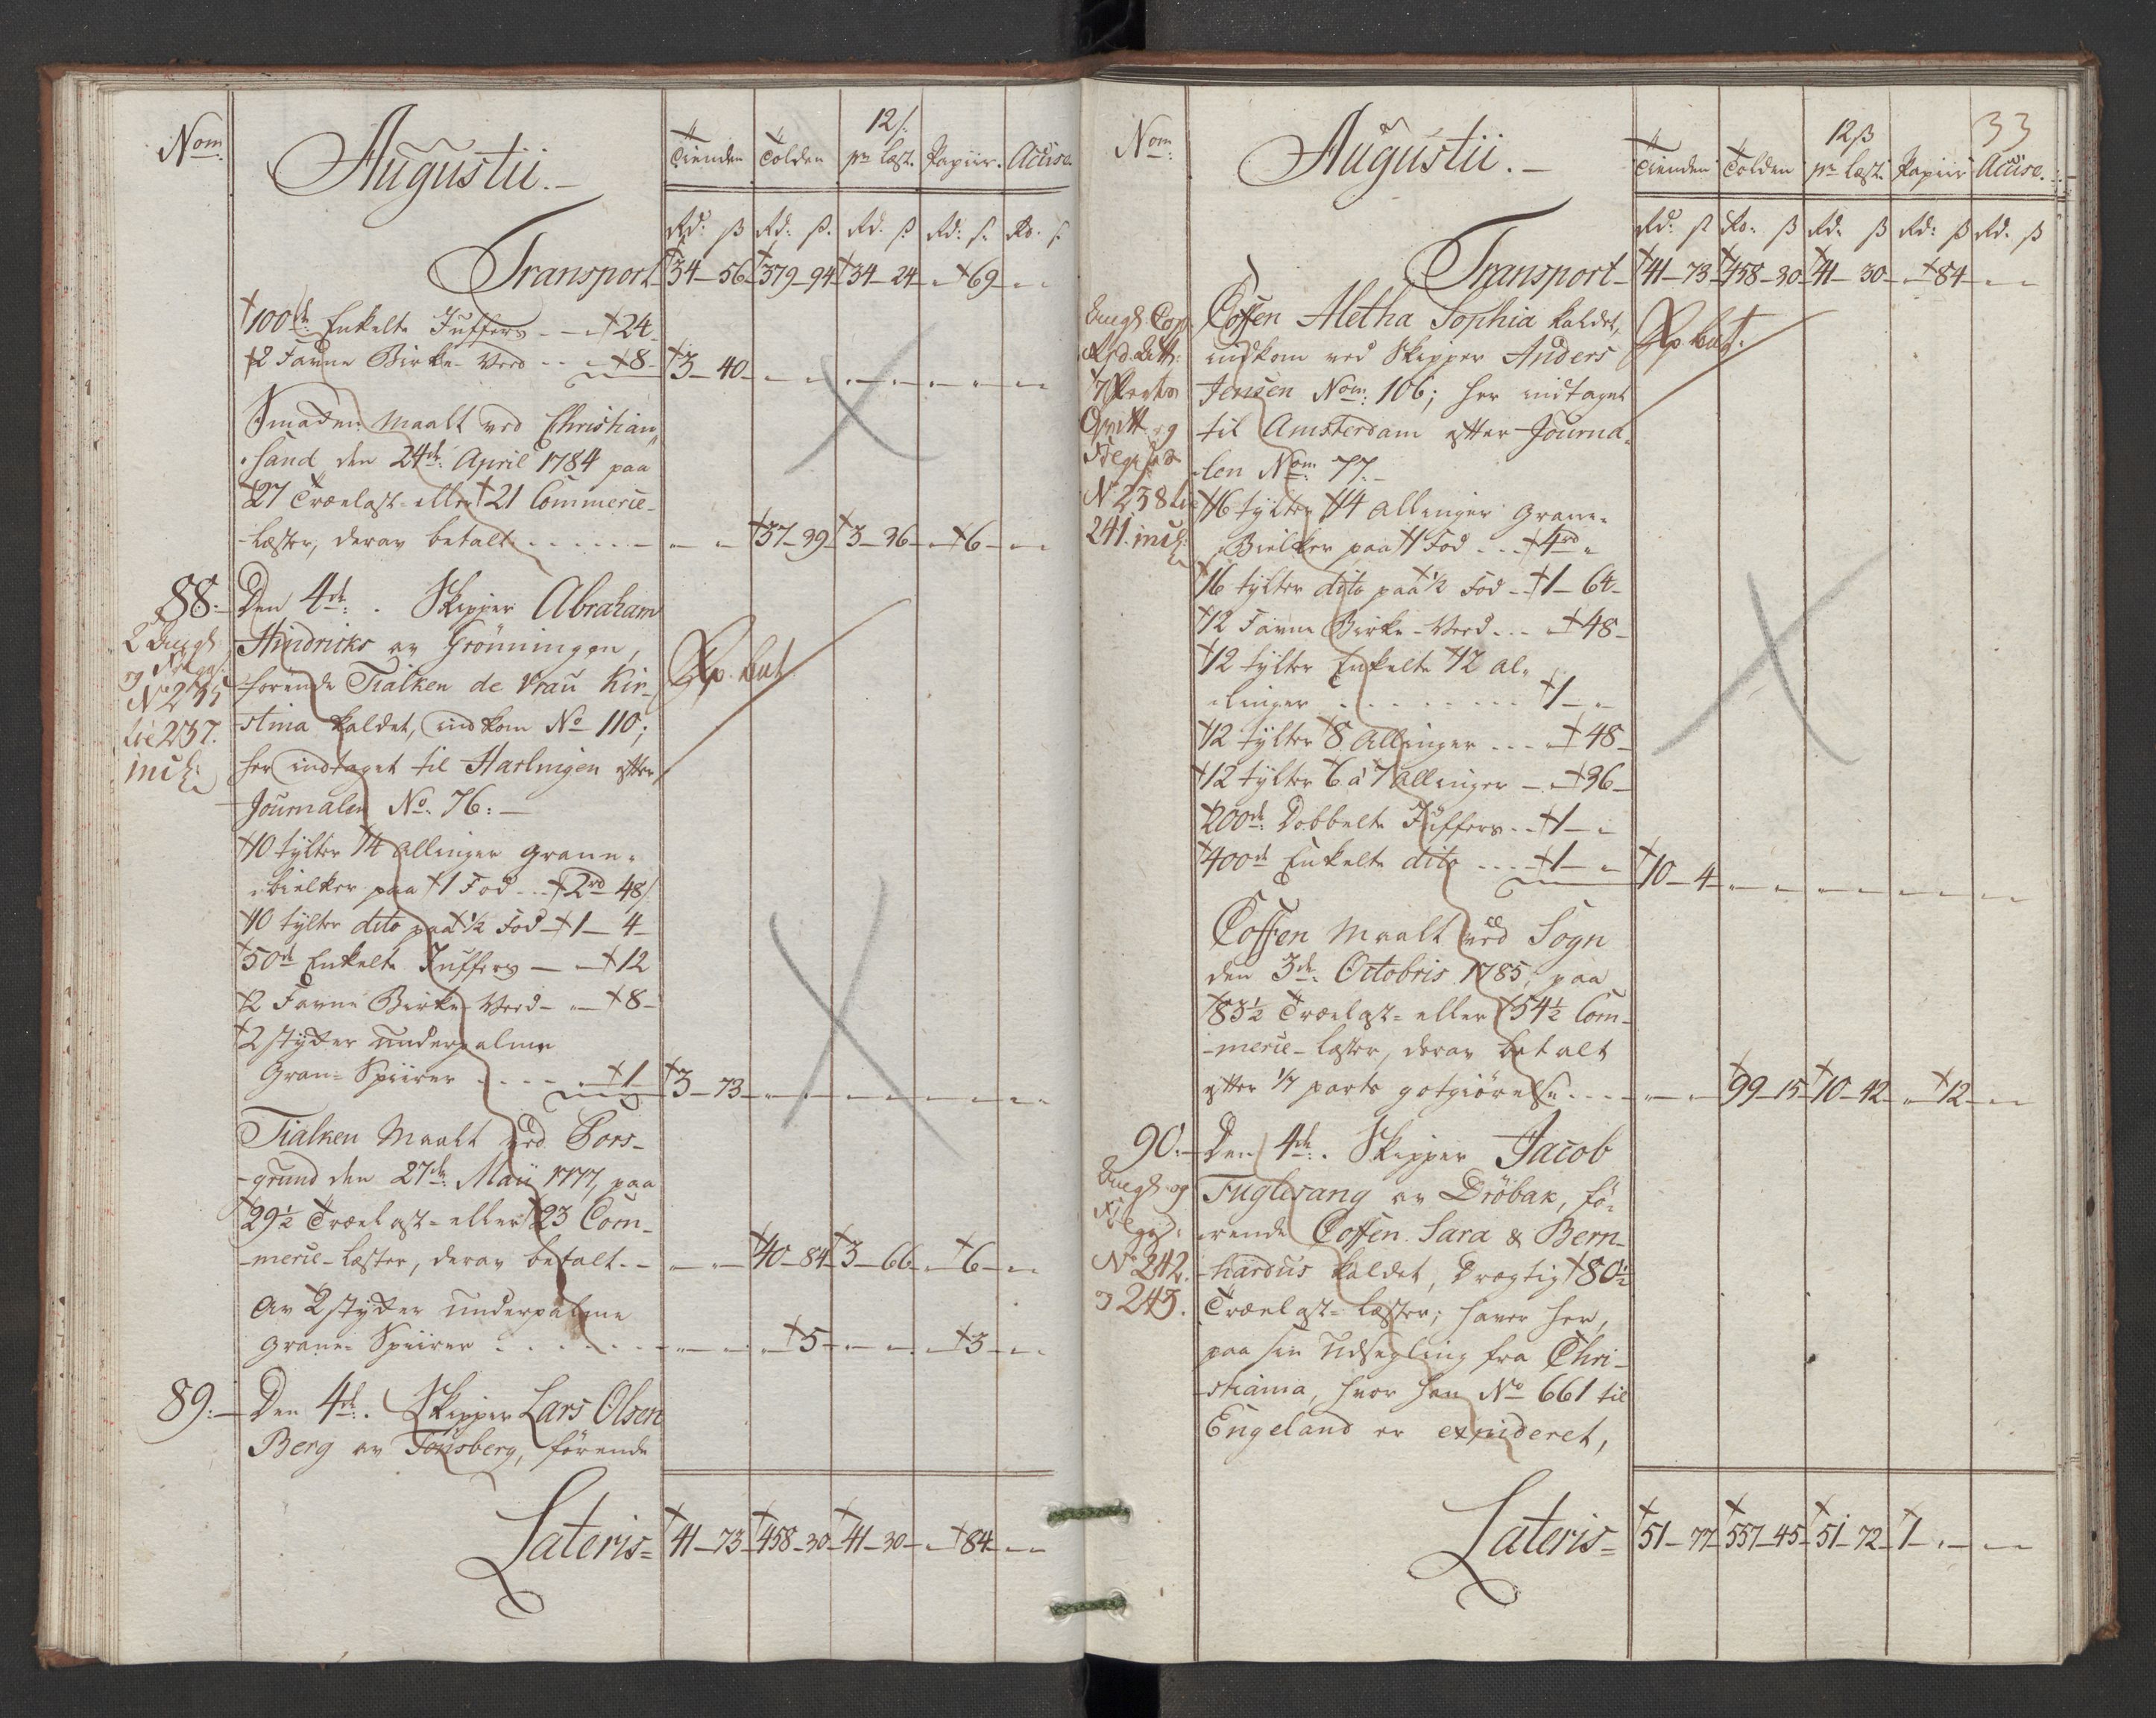 Nom:
Augustii.
Tienden Tolden 12/: pr Læst. Papiir. Accise.
Rd: ß Rd: ß. Rd. ß. Rd: ß. Rd. ß.
Transport 34-56 379-94 34-24 - 69 -
100de Enkelte Juffers - - 24
2 Favne Birke-Veed - - 8- 3-40
Smaken Maalt ved Christian-
-sand den 24de April 1784 paa
27 Trælast- eller 21 Commerie-
-læster, derav betalt - - 37-39 3-36 - 6 -
88. Den 4de. Skipper Abraham
Hindricks av Grönningen,
förende Tialken de Vrau Kir-
stina kaldet, indkom No 110;
her indtaget til Harlingen efter
Journalen No. 76:
No 235
til 237.
incl:
10 tylter 14 Allinger Grane-
bielker paa 1 Fod - 2rd 48/
10 tylter dito paa 1/2 Fod - 1-4-
50de Enkelte Juffers - 12
2 Favne Birke-Veed - 8-
2 stykker underpalme
Grane-Spiirer - 1 3-73
Tialken Maalt ved Pors-
-grund den 27de Maii 1777, paa
29½ Trælast- eller 23 Com-
-merie-læster, derav betalt - - 40-84 3-66 - 6 -
Av 2 stykker underpalme
Grane-Spiirer - 5 - 3 -
89. Den 4de. Skipper Lars Olsen
Berg av Tönsberg, förende
Lateris= 41-73 458-30 41-30 - 84 -
33
Nom:
Augustii.
Tienden Tolden 12ß pr Læst. Papiir Accise.
Rd: ß Rd: ß Rd. ß Rd: ß Rd. ß
Transport 41-73 458-30 41-30 - 84 -
Coffen Aletha Sophia kaldet,
indkom ved Skipper Anders
Jensen Nom: 106; her indtaget
til Amsterdam efter Journa-
-len Nom: 77.
No 238 til
241. incl:
16 tylter 14 Allinger Grane-
Bielker paa 1 Fod - 4rd -
16 tylter dito paa 1/2 Fod - 1-64-
12 Favne Birke-Veed - 48-
12 tylter Enkelte 12 al-
-linger - 1 -
12 tylter 8 Allinger - 48-
12 tylter 6 á 7 Allinger - 36-
200de Dobbelte Juffers - 1 -
400de Enkelte dito - 1 - 10-4
Coffen Maalt ved Sogn
den 3de Octobris 1785, paa
83½ Trælast- eller 54½ Com-
-merie-læster, derav betalt
efter 1/7 parts gotgiörelse - - 99-15 10-42 - 12 -
90. Den 4de. Skipper Jacob
Fuglesang av Dröbak, fö-
rende Coffen Sara & Bern-
-hardus kaldet, Drægtig 80½
No 242.
243.
Trælast-læster; haver her,
paa sin Udsegling fra Chri-
-stiania, hvor han No 661 til
Engeland er expideret,
Lateris= 51-77 557-45 51-72 1 -